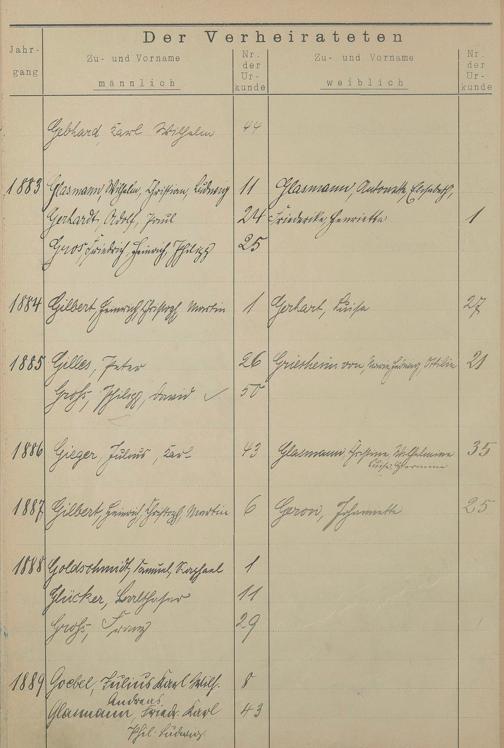 Der Verheirateten
Jahr-
gang
Zu- und Vorname
männlich
Nr.
der
Ur-
kunde
Zu- und Vorname
weiblich
Nr.
der
Ur-
kunde
Gebhard Karl Wilhelm 44
1883 Glasmann, Wilhelm, Christian, Ludwig 11 Glasmann, Antonette, Elisabeth,
Gerhardt, Adolf, Paul 24 Friederike Henriette 1
Gros, Friedrich, Heinrich, Philipp 25
1884 Gilbert, Heinrich, Christoph, Martin 1 Gerhart, Luise 27
1885 Gilles, Peter 26 Griesheim von, Ottilie 21
Groß, Philipp, David 50
1886 Gieger, Julius, Karl 43 Glasmann, Christine, Wilhelmine 35
Luise Hermine
1887 Gilbert, Heinrich, Christoph, Martin 6 Geron, Johannette 25
1888 Goldschmidt, Samuel, Raphael 1
Glücker, Balthasar 11
Groß, Franz 29
1889 Goebel, Julius Karl Wilh. 8
Andreas
Glasmann, Friedr. Karl 43
Phil. Ludwig